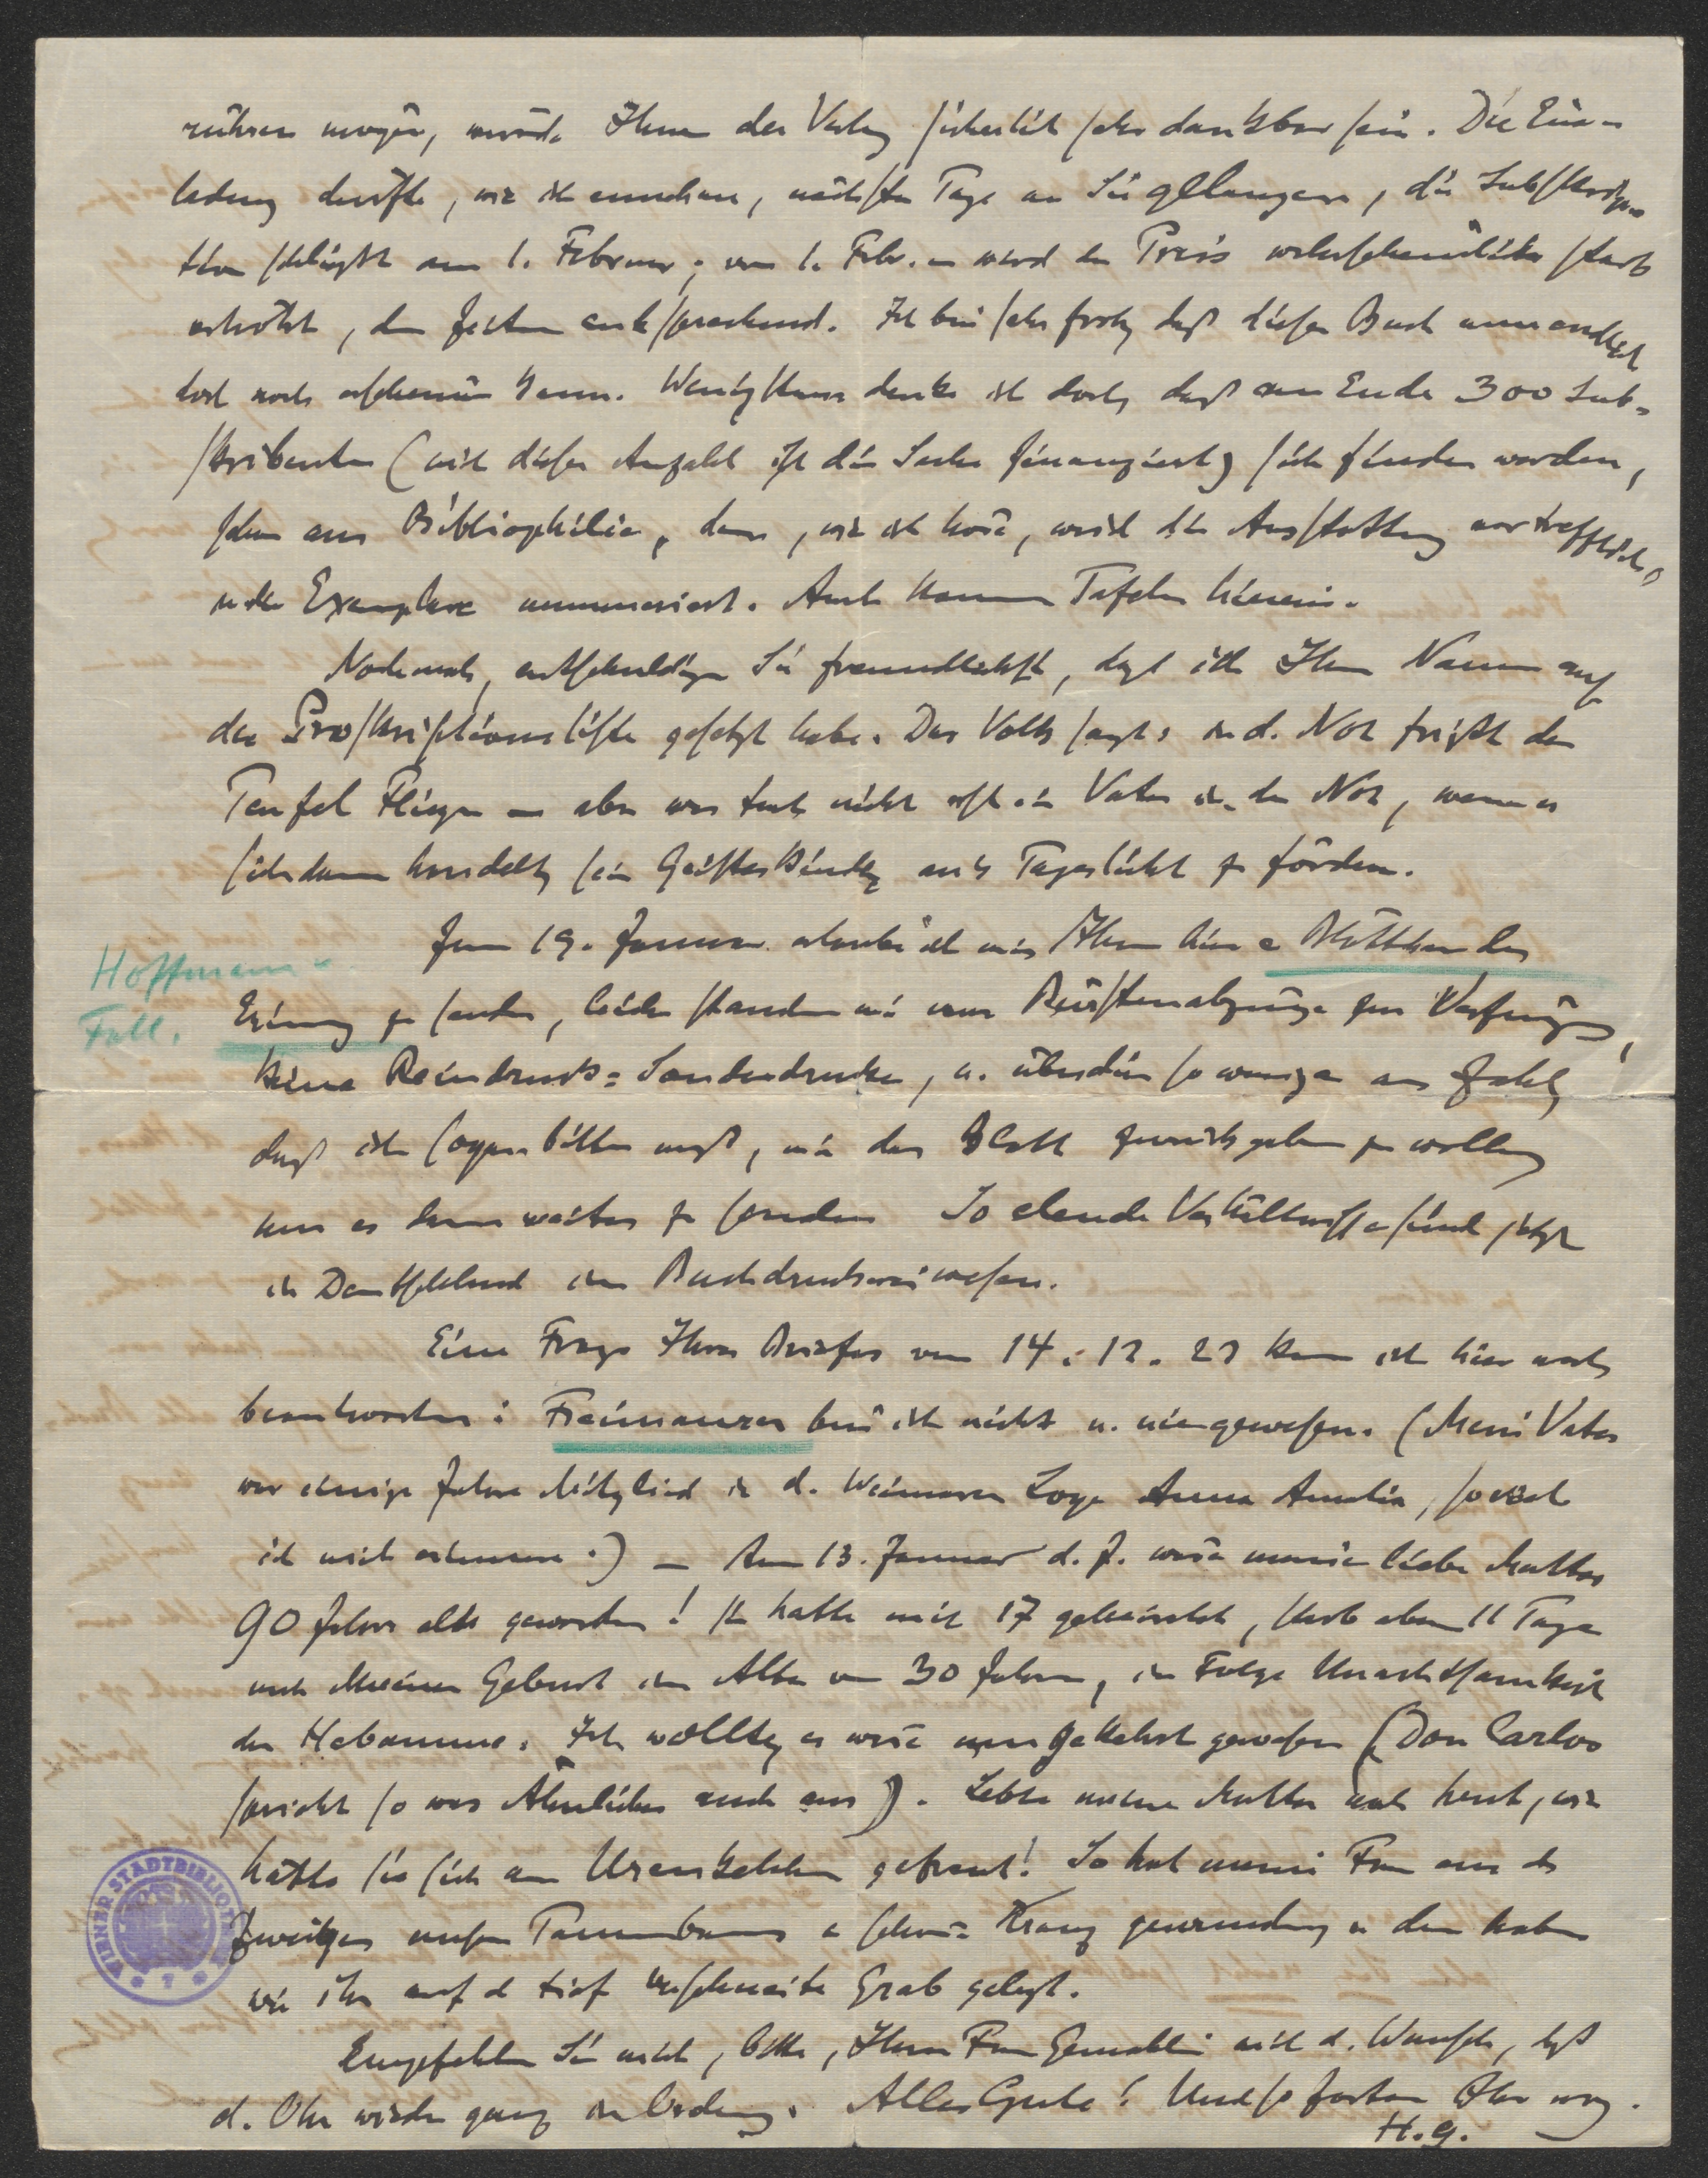 rühren mögen, würde Ihnen der Verlag sicherlich sehr dankbar sein. Die Ein-
ladung dürfte, wie ich annehme, nächster Tage an Sie gelangen, die Subskrip-
tion schließt am 1. Februar; vom 1. Febr. an wird der Preis wahrscheinlich stark
erhöht, den Zeiten entsprechend. Ich bin sehr froh, daß dieses Buch nun endlich
doch noch erscheinen kann. Wenigstens denke ich doch, daß am Ende 300 Sub-
skribenten (mit dieser Anzahl ist die Sache finanziert) sich finden werden,
schon aus Bibliophilie, denn, wie ich höre, wird die Ausstattung vortrefflich,
u. die Exemplare nummeriert. Auch kommen Tafeln hinein.
Nochmals, entschuldigen Sie freundlichst, daß ich Ihren Namen auf
die Proskriptionsliste gesetzt habe. Das Volk sagt: in d. Not frißt der
Teufel Fliegen – aber was tut nicht erst ein Vater in der Not, wenn es
sich darum handelt, sein Geisteskindlein ans Tageslicht zu fördern.
Zum 19. Januar erlaube ich mir Ihnen hier e Blättchen der
Hoffmann-
Fall.
Erinnerung zu senden, leider standen mir nur Bürstenabzüge zur Verfügung,
keine Reindruck-Sonderdrucke, u. überdies so wenige an Zahl,
daß ich sogar bitten muß, mir das Blatt zurückgeben zu wollen,
um es dann weiter zu senden. So elende Verhältnisse sind jetzt
in Deutschland im Buchdruckereiwesen.
Eine Frage Ihres Briefes vom 14. 12. 23 kann ich hier noch
beantworten: Freimaurer bin ich nicht u. nie gewesen. (Mein Vater
war einige Jahre Mitglied in d. Weimarer Loge Anna Amalia, soviel
ich mich erinnere.) – Am 13. Januar d. J. wäre meine liebe Mutter
90 Jahre alt geworden! Sie hatte mit 17 geheiratet, starb aber 11 Tage
nach meiner Geburt im Alter von 30 Jahren, in Folge Unachtsamkeit
der Hebamme. Ich wollte, es wäre umgekehrt gewesen (Don Carlos
spricht so was Ähnliches auch aus). Lebte meine Mutter noch heut, wie
hätte sie sich am Urenkelchen gefreut! So hat meine Frau aus den
Zweigen unsers Tannenbaums e schönen Kranz gewunden, u. den haben
wir ihr auf d. tief verschneite Grab gelegt.
Empfehlen Sie mich, bitte, Ihrer Frau Gemahlin mit d. Wunsche, daß
d. Ohr wieder ganz in Ordnung. Alles Gute! Und so fort an Ihr
H. G.
WIENER STADTBIBLIOTHEK